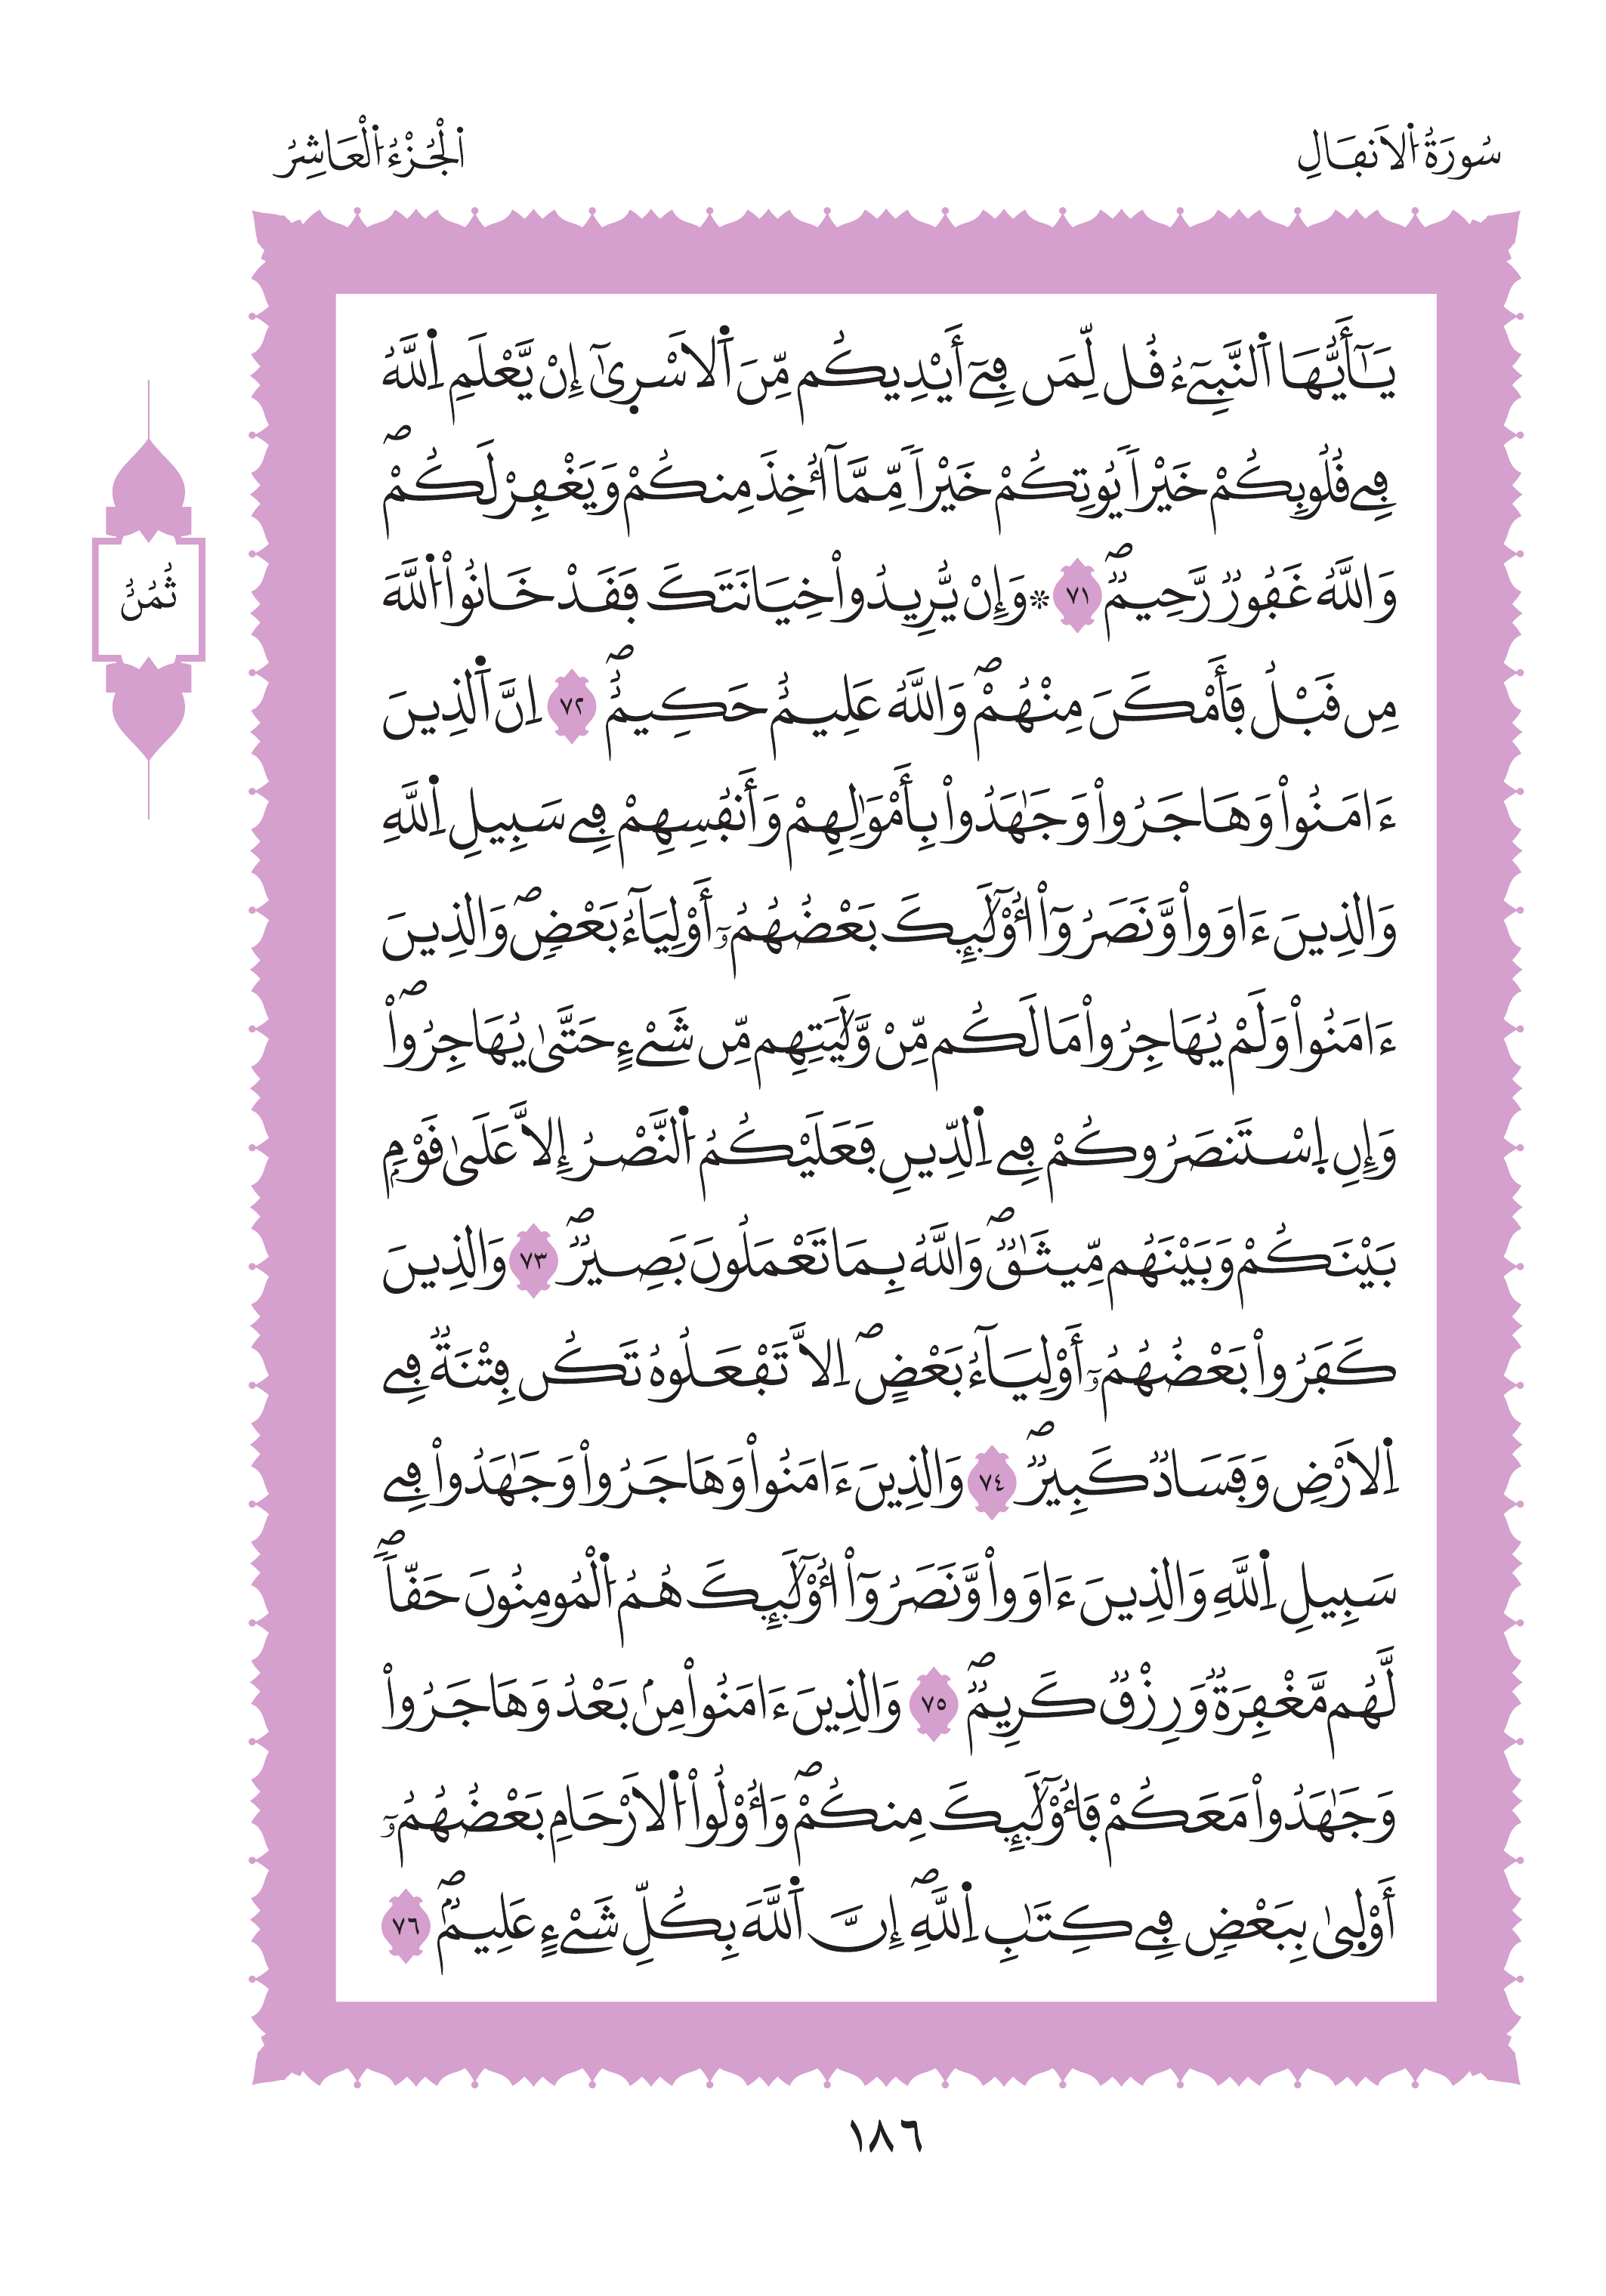 سُورَةُ اُ۬لَانفَالِ
اُ۬لْجُزْءُ اُ۬لْعَاشِرُ
يَـٰٓأَيُّهَا اَ۬لنَّبِےٓءُ قُل لِّمَن فِےٓ أَيْدِيكُم مِّنَ اَ۬لَاسْر۪يٰٓ إِنْ يَّعْلَمِ اِ۬للَّهُ
فِے قُلُوبِكُمْ خَيْراٗ يُوتِكُمْ خَيْراٗ مِّمَّآ أُخِذَ مِنكُمْ وَيَغْفِرْ لَكُمْۖ
وَاللَّهُ غَفُورٞ رَّحِيمٞۖ ٧١ ۞ وَإِنْ يُّرِيدُواْ خِيَانَتَكَ فَقَدْ خَانُواْ اُ۬للَّهَ
مِن قَبْلُ فَأَمْكَنَ مِنْهُمْۖ وَاللَّهُ عَلِيمٌ حَكِيمٌۖ ٧٢ اِنَّ اَ۬لذِينَ
ءَامَنُواْ وَهَاجَرُواْ وَجَٰهَدُواْ بِأَمْوَٰلِهِمْ وَأَنفُسِهِمْ فِے سَبِيلِ اِ۬للَّهِ
وَالذِينَ ءَاوَواْ وَّنَصَرُوٓاْ أُوْلَٰٓئِكَ بَعْضُهُمُۥٓ أَوْلِيَآءُ بَعْضٖۖ وَالذِينَ
ءَامَنُواْ وَلَمْ يُهَاجِرُواْ مَا لَكُم مِّنْ وَّلَٰيَتِهِم مِّن شَےْءٍ حَتَّيٰ يُهَاجِرُواْۖ
وَإِنِ اِ۪سْتَنصَرُوكُمْ فِے اِ۬لدِّينِ فَعَلَيْكُمُ اُ۬لنَّصْرُ إِلَّا عَلَيٰ قَوْمِۢ
بَيْنَكُمْ وَبَيْنَهُم مِّيثَٰقٞۖ وَاللَّهُ بِمَا تَعْمَلُونَ بَصِيرٞۖ ٧٣ وَالذِينَ
كَفَرُواْ بَعْضُهُمُۥٓ أَوْلِيَآءُ بَعْضٍۖ اِلَّا تَفْعَلُوهُ تَكُن فِتْنَةٞ فِے
اِ۬لَارْضِ وَفَسَادٞ كَبِيرٞۖ ٧٤ وَالذِينَ ءَامَنُواْ وَهَاجَرُواْ وَجَٰهَدُواْ فِے
سَبِيلِ اِ۬للَّهِ وَالذِينَ ءَاوَواْ وَّنَصَرُوٓاْ أُوْلَٰٓئِكَ هُمُ اُ۬لْمُومِنُونَ حَقّاٗۖ
لَّهُم مَّغْفِرَةٞ وَرِزْقٞ كَرِيمٞۖ ٧٥ وَالذِينَ ءَامَنُواْ مِنۢ بَعْدُ وَهَاجَرُواْ
وَجَٰهَدُواْ مَعَكُمْ فَأُوْلَٰٓئِكَ مِنكُمْۖ وَأُوْلُواْ اُ۬لَارْحَامِ بَعْضُهُمُۥٓ
أَوْل۪يٰ بِبَعْضٖ فِے كِتَٰبِ اِ۬للَّهِۖ إِنَّ اَ۬للَّهَ بِكُلِّ شَےْءٍ عَلِيمٌۖ ٧٦
ثُمُنُ
١٨٦